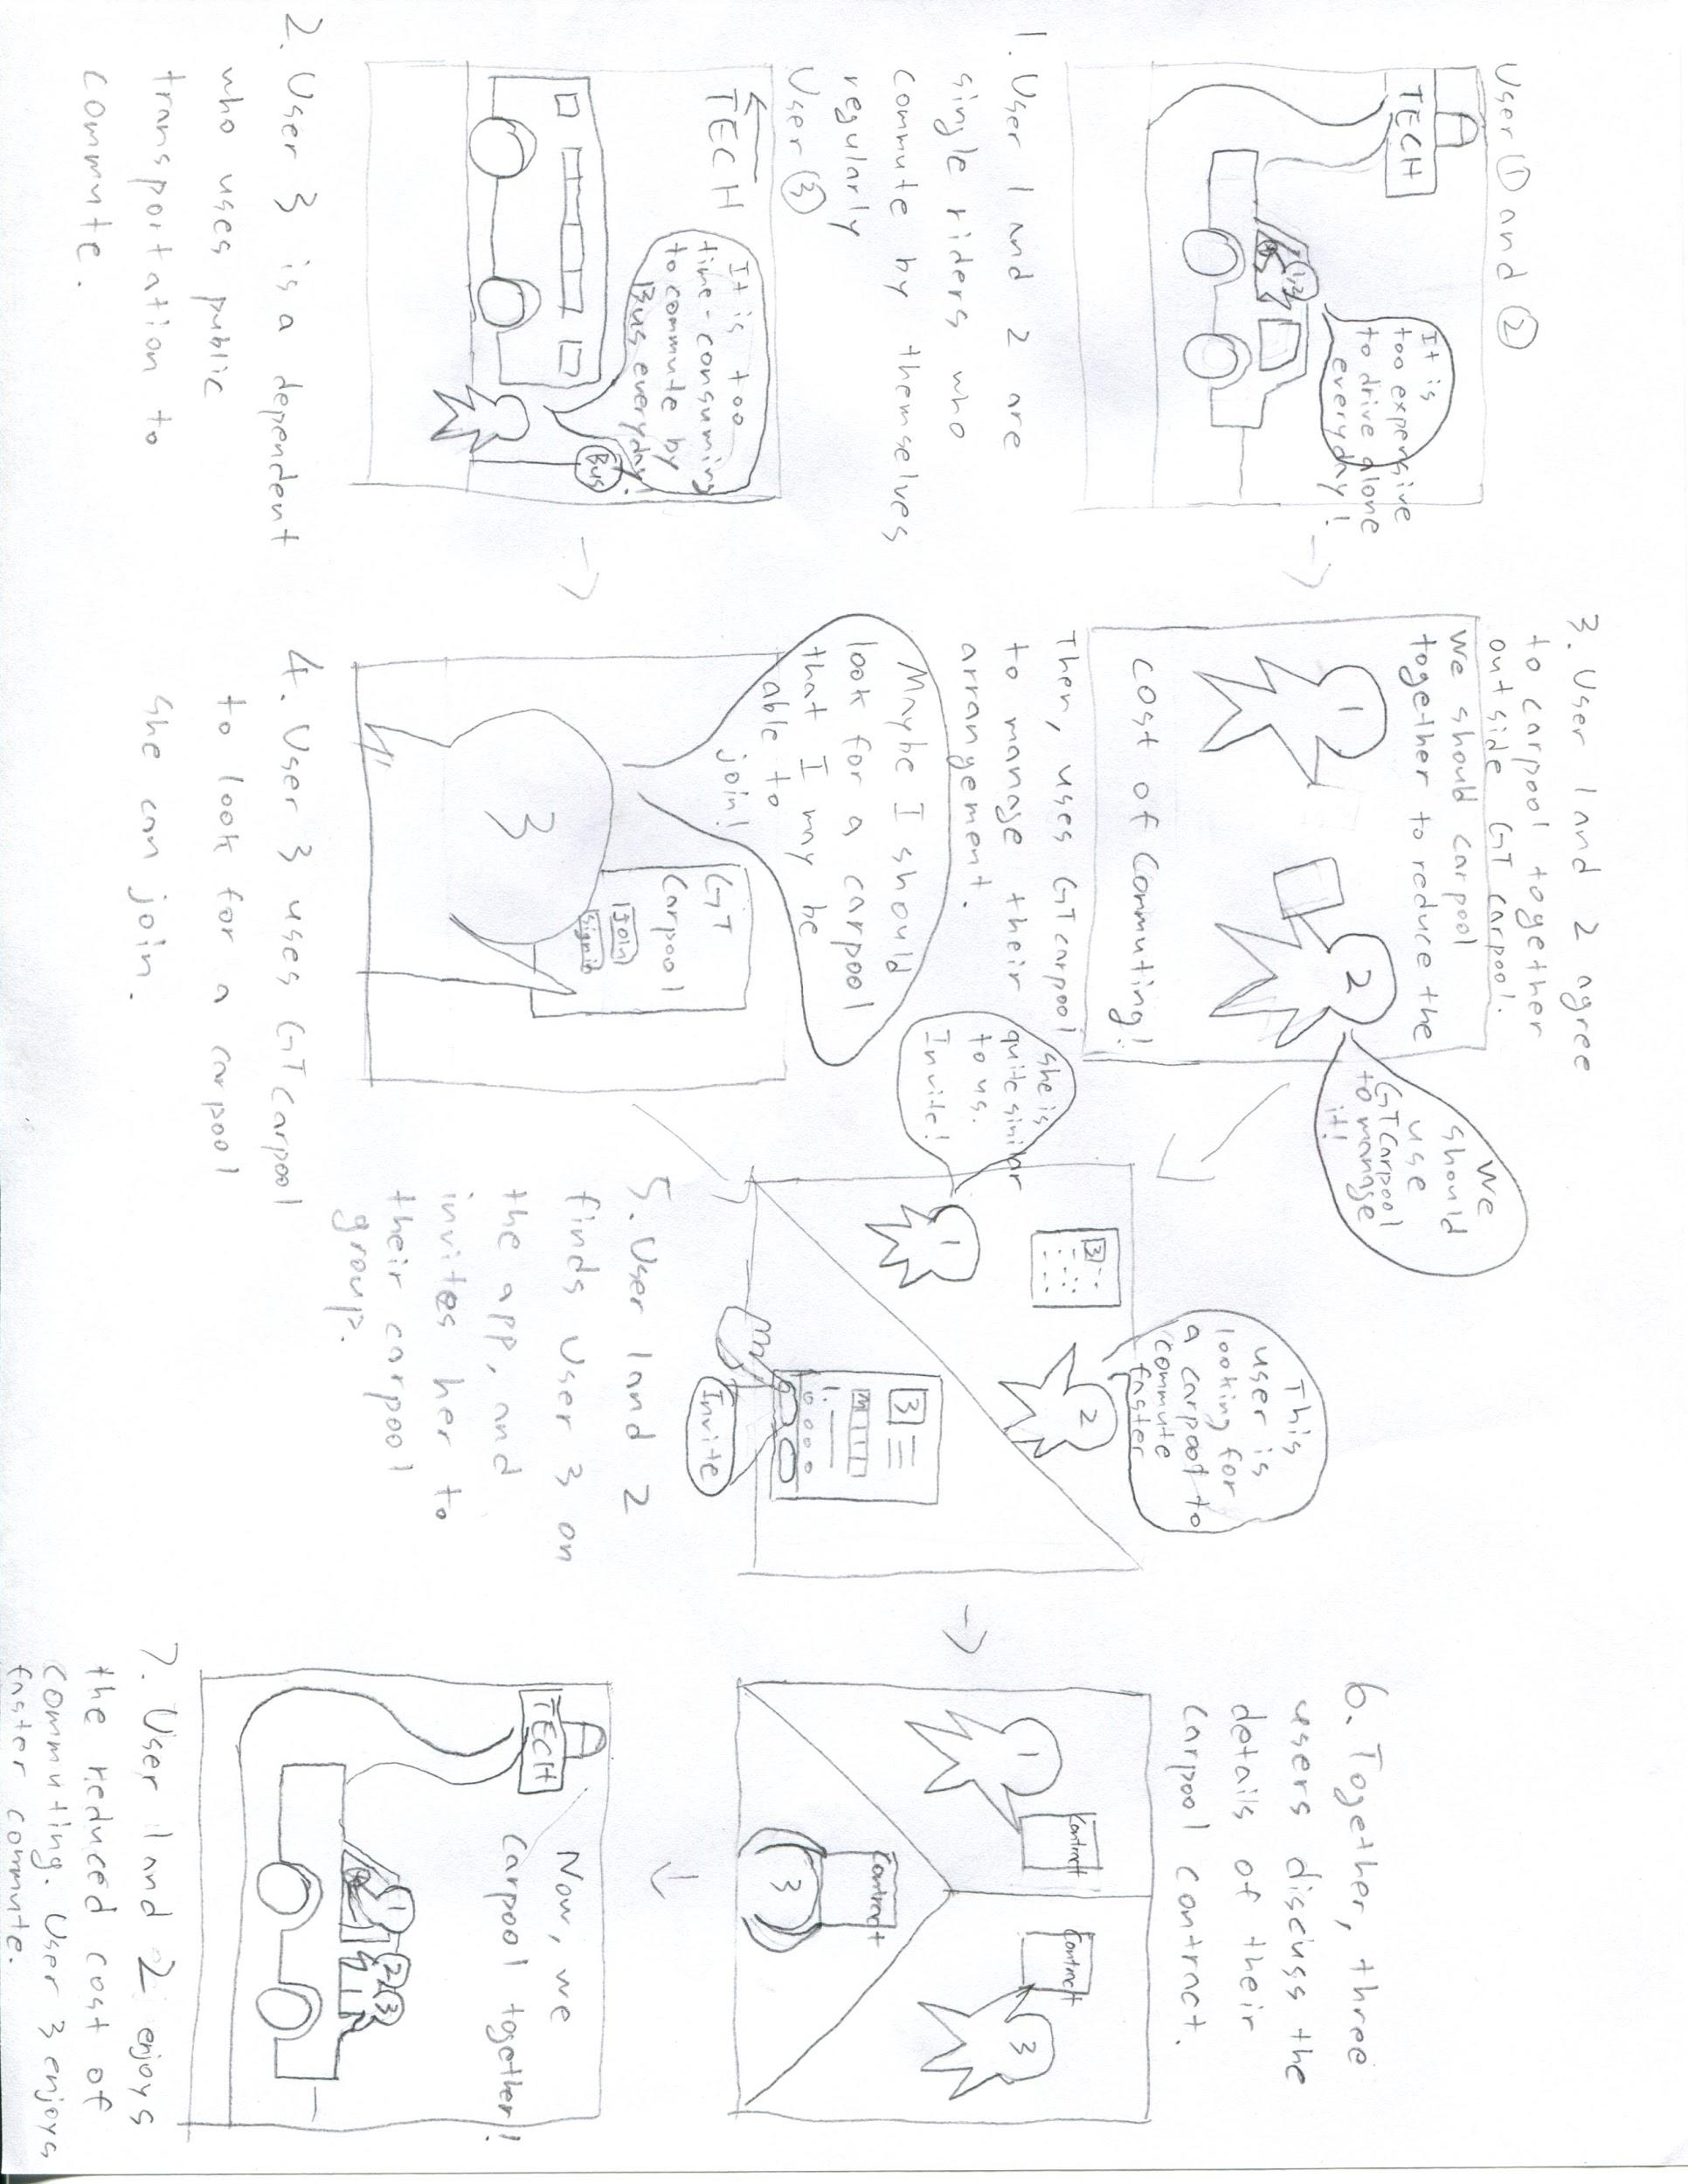 User ① and ②
TECH
It is
too expensive
to drive alone
everyday!
1/2
1. User 1 and 2 are
single riders who
commute by themselves
regularly
User ③
TECH
It is too
time-consuming
to commute by
Bus everyday!
Bus
2. User 3 is a dependent
who uses public
transportation to
commute.
3. User 1 and 2 agree
to carpool together
outside GT carpool.
We should carpool
together to reduce the
cost of commuting!
1
2
We
should
use
GT Carpool
to manage
it!
Then, uses GT carpool
to manage their
arrangement.
Maybe I should
look for a carpool
that I may be
able to
join!
GT
Carpool
Join
Sign in
3
4. User 3 uses GT Carpool
to look for a carpool
she can join.
She is
quite similar
to us.
Invite!
This
user is
looking for
a carpool to
commute
faster
3
1
2
3
Invite
5. User 1 and 2
finds User 3 on
the app, and
invites her to
their carpool
group.
6. Together, three
users discuss the
details of their
carpool contract.
Contract
Contract
1
3
Contract
3
TECH
Now, we
carpool together!
1
2
3
7. User 1 and 2 enjoys
the reduced cost of
commuting. User 3 enjoys
faster commute.